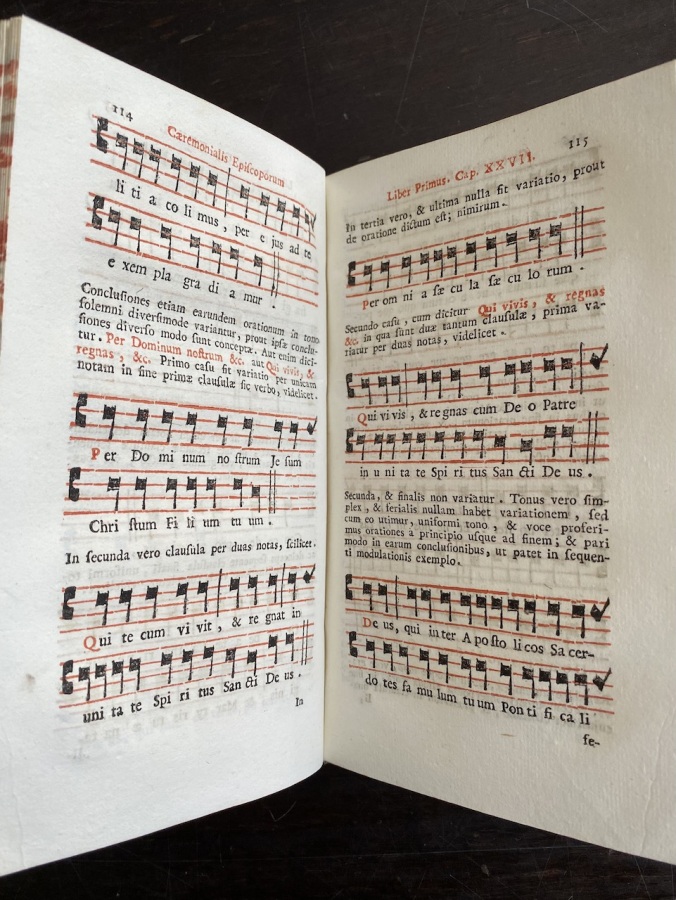 114
Cæremonialis Epiſcoporum
li ti a co li mus, per e jus ad te
e xem pla gra di a mur.
Concluſiones etiam earundem orationum in tono
ſolemni diverſimode variantur, prout ipſæ conclu-
ſiones diverſo modo ſunt conceptæ. Aut enim dici-
tur. Per Dominum noſtrum &c. aut Qui vivis, &
regnas, &c. Primo caſu fit variatio per unicam
notam in fine primæ clauſulæ ſic verbo, videlicet.
Per Do mi num no ſtrum Je ſum
Chri ſtum Fi li um tu um.
In ſecunda vero clauſula per duas notas, ſcilicet.
Qui te cum vi vit, & re gnat in
uni ta te Spi ri tus San cti De us.
In
115
Liber Primus. Cap. XXVII.
In tertia vero, & ultima nulla fit variatio, prout
de oratione dictum eſt; nimirum.
Per om ni a ſæ cu la ſæ cu lo rum.
Secundo caſu, cum dicitur Qui vivis, & regnas
&c. in qua ſunt duæ tantum clauſulæ, prima va-
riatur per duas notas, videlicet.
Qui vi vis, & re gnas cum De o Patre
in u ni ta te Spi ri tus San cti De us.
Secunda, & finalis non variatur. Tonus vero ſim-
plex, & ferialis nullam habet variationem, ſed
cum eo utimur, uniformi tono, & voce proferi-
mus orationes a principio uſque ad finem; & pari
modo in earum concluſionibus, ut patet in ſequen-
ti modulationis exemplo.
De us, qui in ter A po ſto li cos Sa cer-
do tes fa mu lum tu um Pon ti fi ca li
ſe-